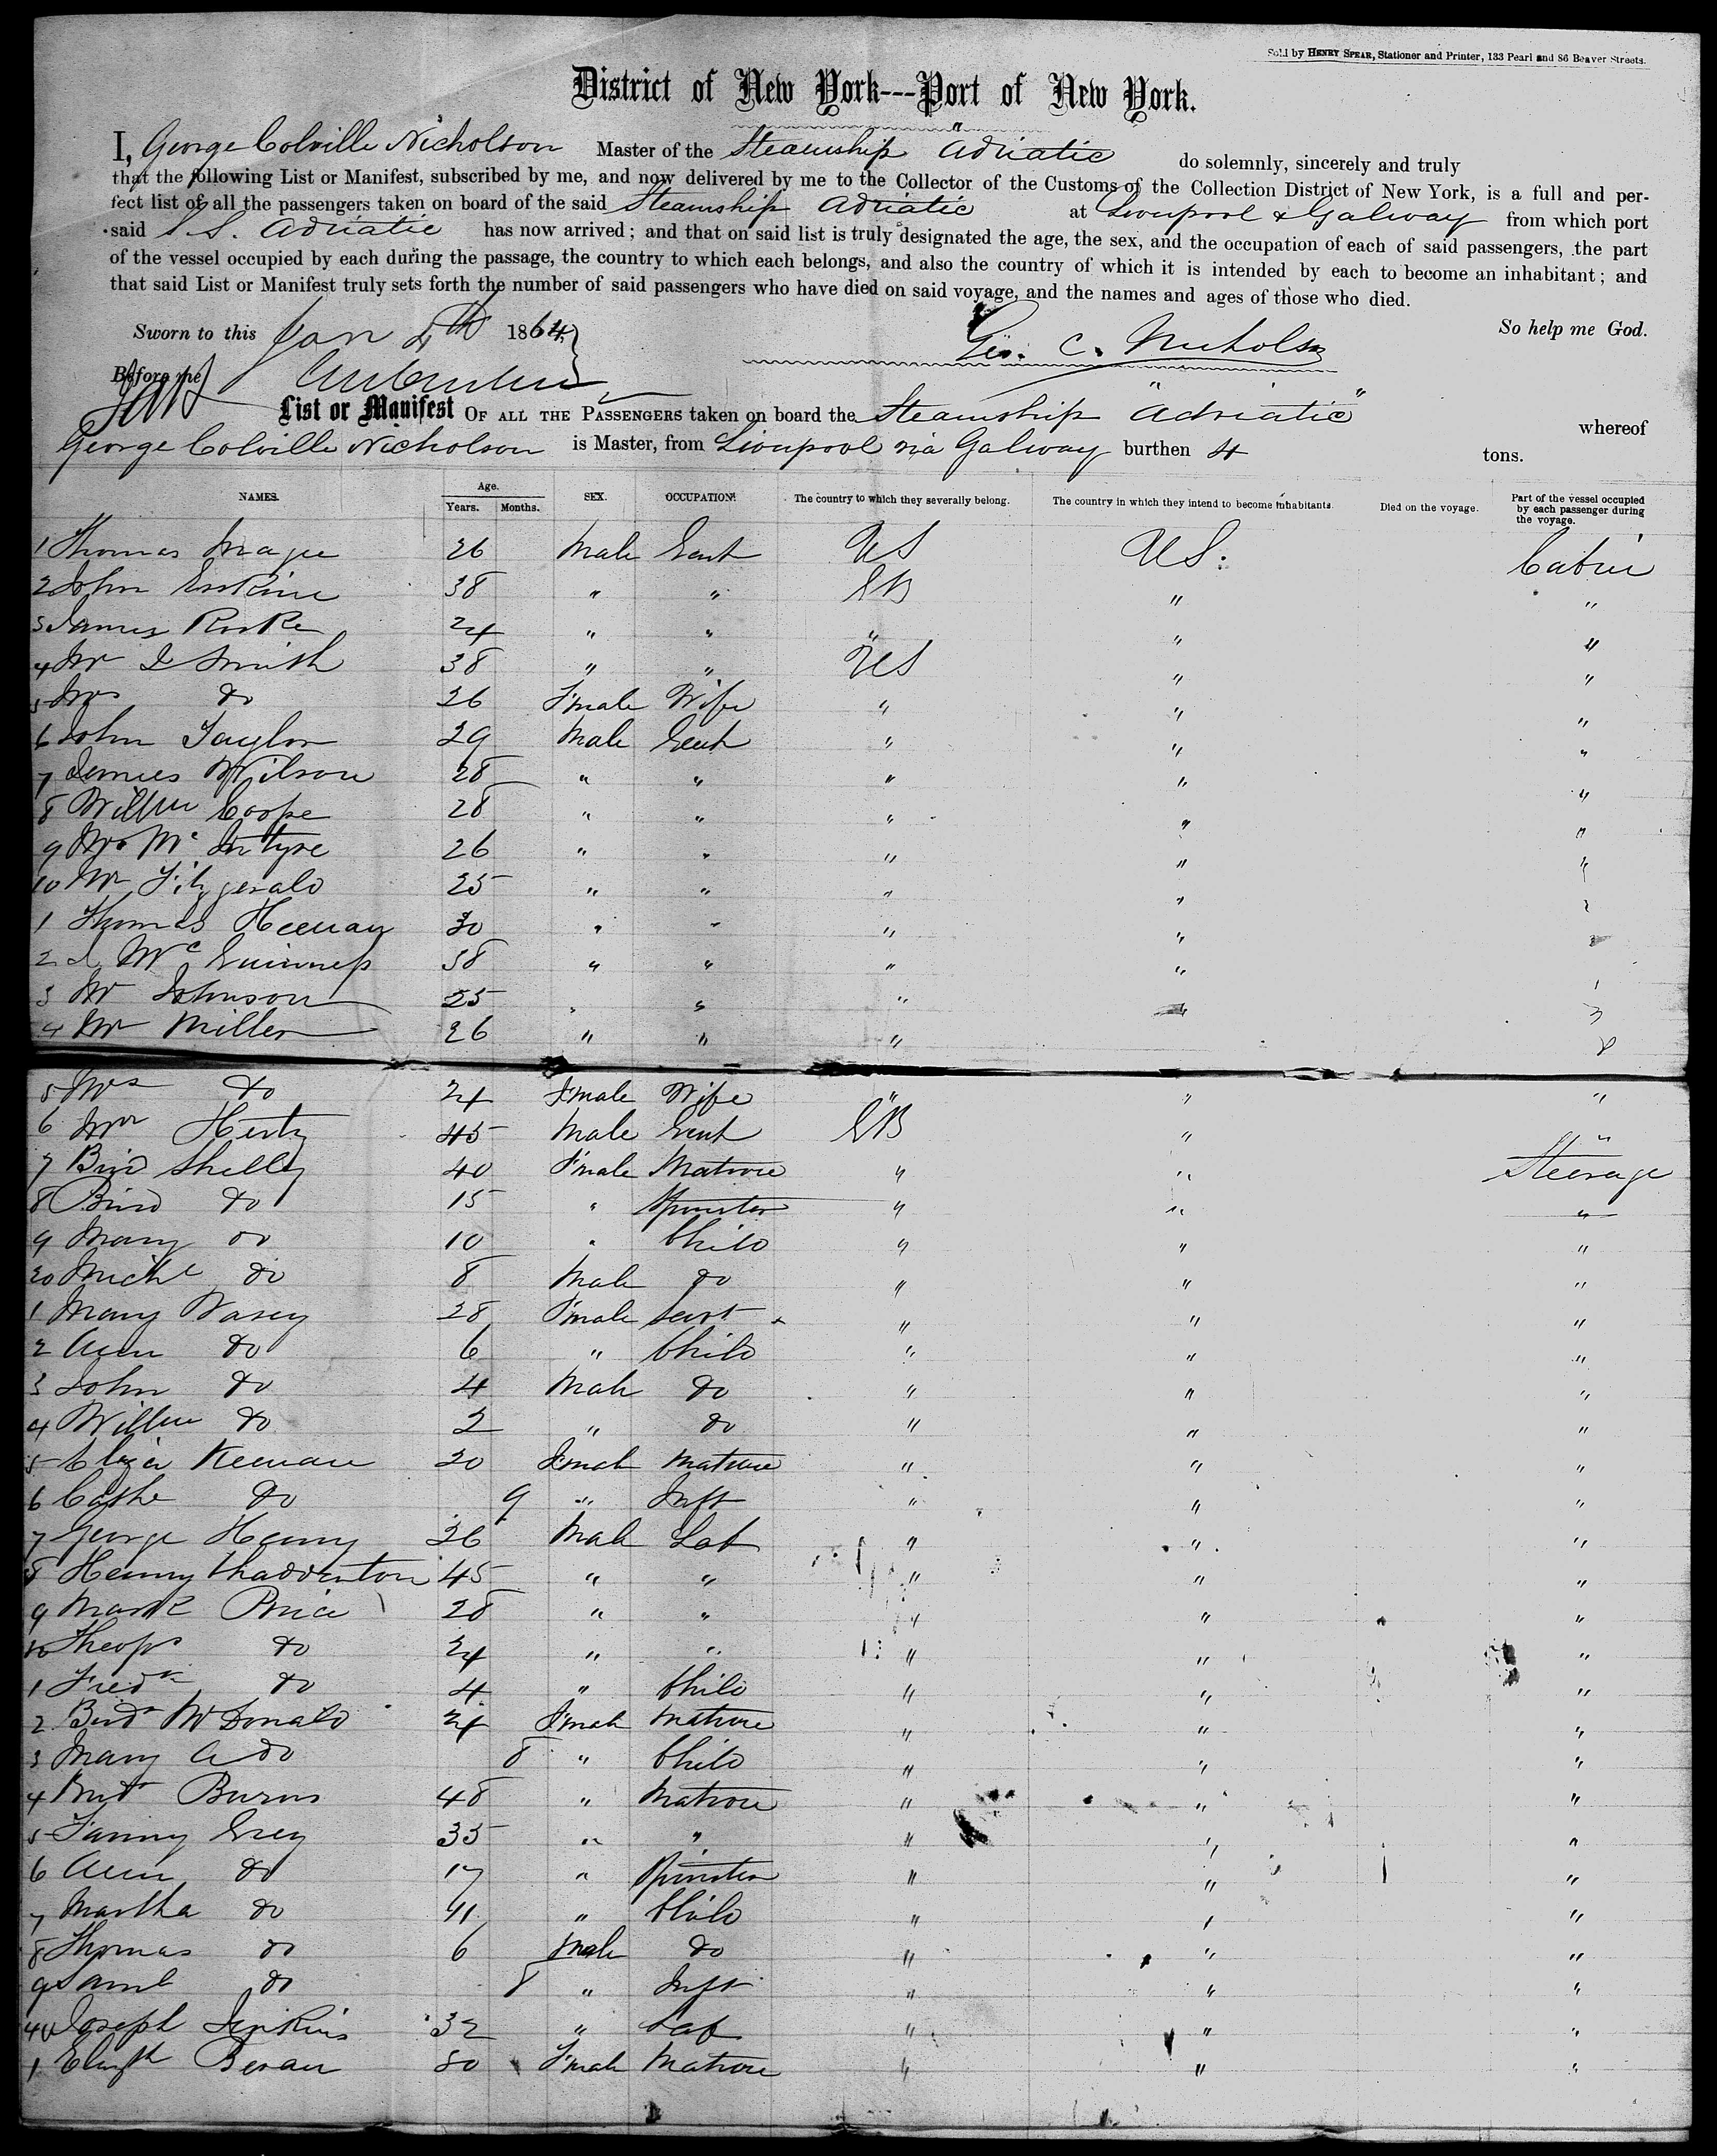 Sold by HENRY SPEAR, Stationer and Printer, 133 Pearl and 86 Beaver Streets.
District of New York---Port of New York.
I, George Colville Nicholson Master of the Steamship "Adriatic do solemnly, sincerely and truly
that the following List or Manifest, subscribed by me, and now delivered by me to the Collector of the Customs of the Collection District of New York, is a full and per-
fect list of all the passengers taken on board of the said Steamship Adriatic at Liverpool & Galway from which port
said S.S. Adriatic has now arrived; and that on said list is truly designated the age, the sex, and the occupation of each of said passengers, the part
of the vessel occupied by each during the passage, the country to which each belongs, and also the country of which it is intended by each to become an inhabitant; and
that said List or Manifest truly sets forth the number of said passengers who have died on said voyage, and the names and ages of those who died.
So help me God.
Sworn to this Jan 1864
Geo. C. Nicholson
Before me
List or Manifest OF ALL THE PASSENGERS taken on board the Steamship "Adriatic" whereof
George Colville Nicholson is Master, from Liverpool via Galway burthen 4 tons.
NAMES. Age. Years. Months. SEX. OCCUPATION. The country to which they severally belong. The country in which they intend to become inhabitants. Died on the voyage. Part of the vessel occupied by each passenger during the voyage.
1 Thomas Magee 26 Male Gent US US. Cabin
2 John Erskine 38 " " GB " "
3 James 24 " " " " "
4 Mr J Smith 38 " " US " "
5 Mrs do 26 Female Wife " " "
6 John Taylor 29 Male Gent " " "
7 James Wilson 28 " " " " "
8 Willm Coope 28 " " " " "
9 Mr McIntyre 26 " " " " "
10 Mr Fitzgerald 25 " " " " "
1 Thomas Heenan 30 " " " "
2 J McGuinness 38 " " " "
3 Mr Johnson 25 " " " "
4 Mr Miller 26 " " " "
5 Mrs do 24 Female Wife " " "
6 Mr Hertz 45 Male Gent GB " "
7 Brid Shelly 40 Female Matron " " Steerage
8 Brid do 15 " Spinster " " "
9 Mary do 10 " Child " " "
20 Michl do 8 Male do " " "
1 Mary Vasey 28 Female Servt " " "
2 Ann do 6 " Child " " "
3 John do 4 Male do " " "
4 Willm do 2 " do " " "
5 Eliza Keenan 20 Female Matron " " "
6 Cathe do 9 " Inft " " "
7 George Henry 36 Male Lab " " "
8 Henry 45 " " " " "
9 Mark Price 28 " " " " "
30 Theops do 24 " " " " "
1 Fredk do 4 " Child " " "
2 Bridt McDonald 24 Female Matron " " "
3 Mary A do 8 " Child " " "
4 Bridt Burns 48 " Matron " " "
5 Fanny Grey 35 " " " " "
6 Ann do 17 " Spinster " " "
7 Martha do 11 " Child " " "
8 Thomas do 6 Male do " " "
9 Saml do 8 " Inft " " "
40 Joseph Jenkins 32 " Lab " " "
1 Elizth Bevan 50 Female Matron " " "